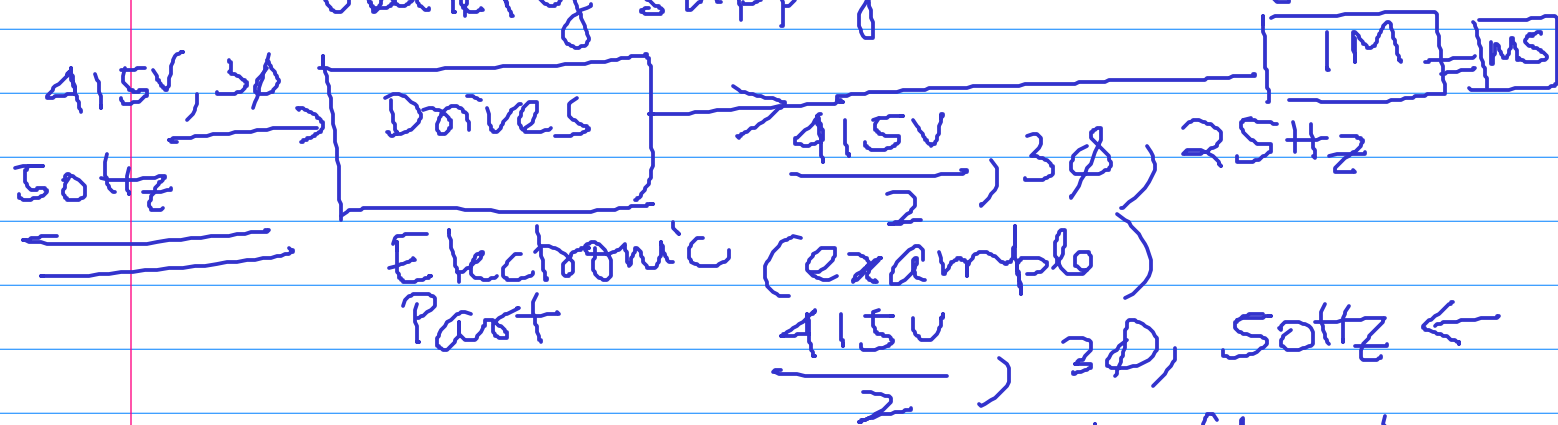 supply
415V, 3Ø
50Hz
Drives
IM
MS
415V/2, 3Ø, 25Hz
Electronic Part
(example)
415V/2, 3Ø, 50Hz ←